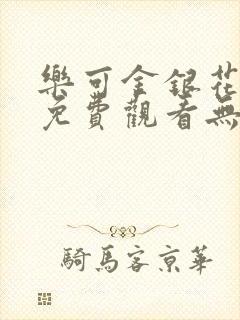 樂可金銀花
免費觀看無
騎馬客京華